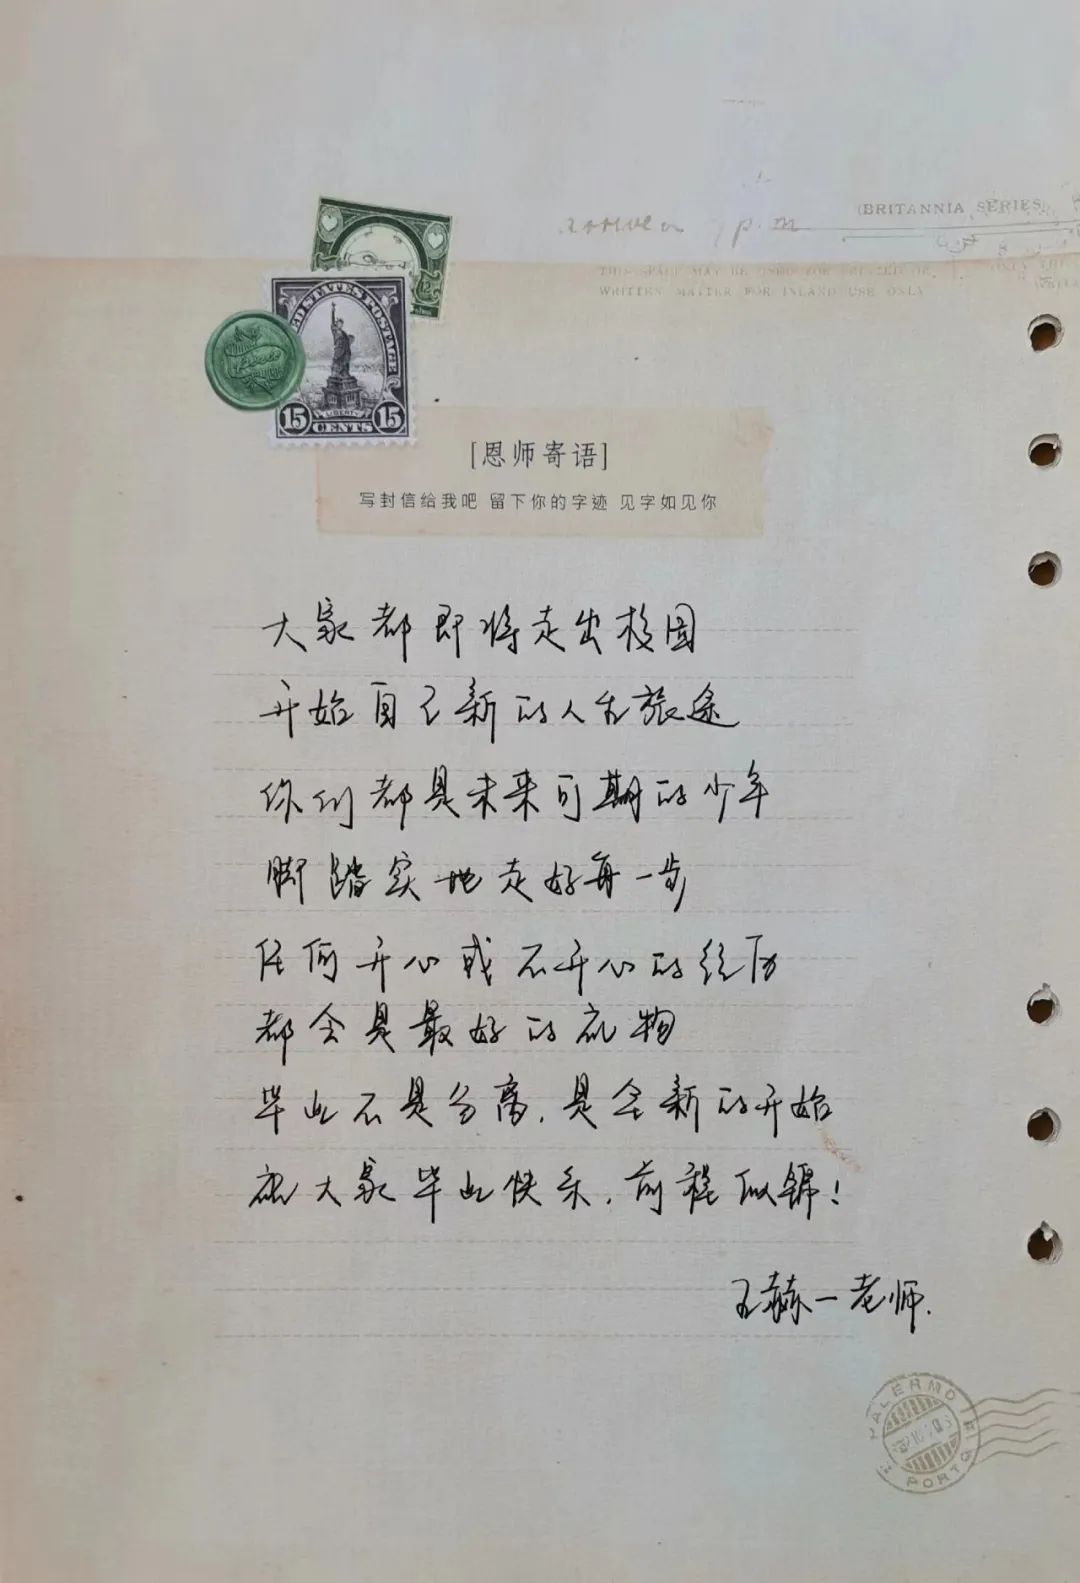 (BRITANNIA SERIES
THIS SPACE MAY BE USED FOR
WRITTEN MATTER FOR INLAND USE ONLY
UNITED STATES POSTAGE
LIBERTY
15 CENTS 15
[恩师寄语]
写封信给我吧 留下你的字迹 见字如见你
大家都即将走出校园
开始自己新的人生旅途
你们都是未来可期的少年
脚踏实地走好每一步
任何开心或不开心的经历
都会是最好的礼物
毕业不是分离,是全新的开始
祝大家毕业快乐,前程似锦!
王赫一老师.
PALERMO
PORTO